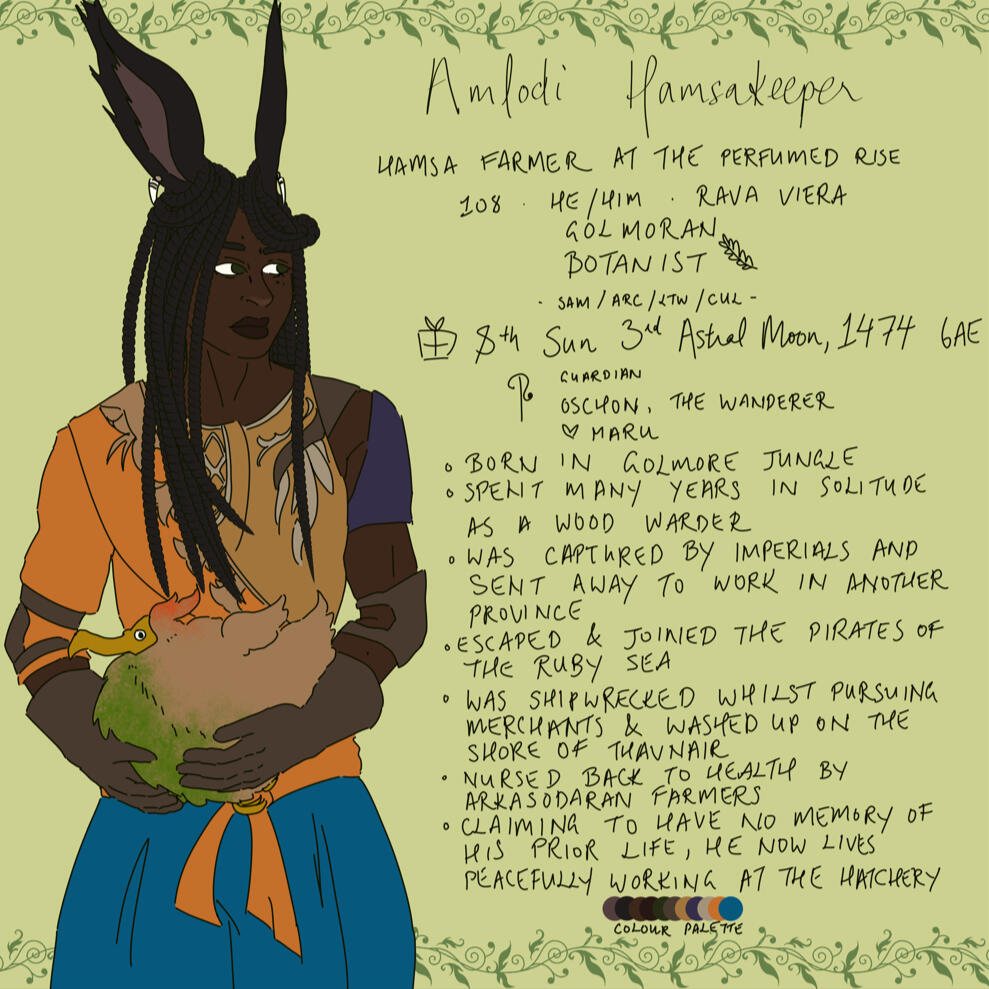 Amlodi Hamsakeeper
HAMSA FARMER AT THE PERFUMED RISE
108 · HE/HIM · RAVA VIERA
GOLMORAN
BOTANIST
- SAM/ARC/LTW/CUL -
8th Sun 3rd Astral Moon, 1474 6AE
GUARDIAN
OSCHON, THE WANDERER
♡ MARU
○ BORN IN GOLMORE JUNGLE
○ SPENT MANY YEARS IN SOLITUDE
AS A WOOD WARDER
○ WAS CAPTURED BY IMPERIALS AND
SENT AWAY TO WORK IN ANOTHER
PROVINCE
○ ESCAPED & JOINED THE PIRATES OF
THE RUBY SEA
○ WAS SHIPWRECKED WHILST PURSUING
MERCHANTS & WASHED UP ON THE
SHORE OF THAVNAIR
○ NURSED BACK TO HEALTH BY
ARKASODARAN FARMERS
○ CLAIMING TO HAVE NO MEMORY OF
HIS PRIOR LIFE, HE NOW LIVES
PEACEFULLY WORKING AT THE HATCHERY
COLOUR PALETTE